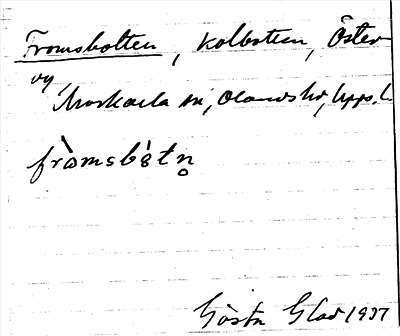 Fromsbotten, Kolbotten, Öster
by, Morkarla sn, Olands hd, Upps. l.
fròmsbòtn̥
Gösta Glad 1937